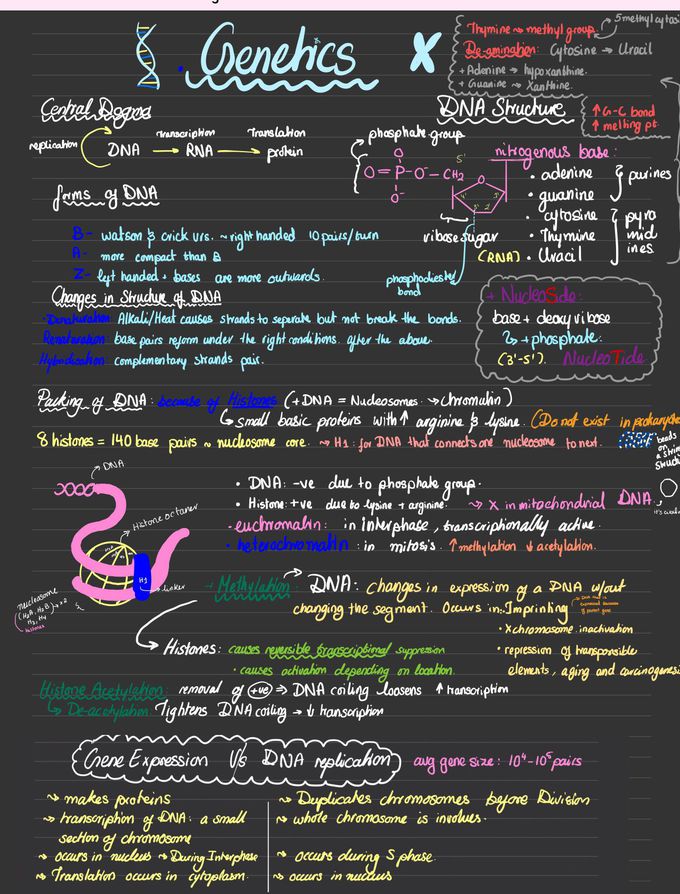 Genetics
Thymine → methyl group
5 methyl cytosi
De-amination: Cytosine → Uracil
+ Adenine → hypoxanthine.
+ Guanine → Xanthine.
Central Dogma
replication
DNA
Transcription
RNA
Translation
protein
DNA Structure
↑ G-C bond
↑ melting pt.
phosphate group
O
O=P-O⁻-CH₂
O⁻
5'
O
4'
1'
3'
2'
ribose sugar
phosphodiester
bond
nitrogenous base:
• adenine
• guanine
} purines
• cytosine
• Thymine
(RNA) • Uracil
} pyro
mid
ines
forms of DNA
B- watson & crick vrs. ~ right handed 10 pairs/turn
A- more compact than B
Z- lyt handed + bases are more outwards.
Changes in Structure of DNA
• Denaturation: Alkali/Heat causes strands to seperate but not break the bonds.
Renaturation: base pairs reform under the right conditions. after the above.
Hybridisation: complementary strands pair.
+ NucleoSide:
base + deoxyribose
↳ + phosphate:
(3'-5'). NucleoTide
Packing of DNA: because of Histones (+ DNA = Nucleosomes → chromatin)
↳ small basic proteins with ↑ arginine & lysine. (Do not exist in prokaryote
8 histones = 140 base pairs ~ nucleosome core. → H1: for DNA that connects one nucleosome to next.
beads
on
a Strin
Struct
DNA
Histone octamer
H1
linker
nucleosome
(H2A, H2B) x2
H3, H4
histones
• DNA: -ve due to phosphate group.
• Histone: +ve due to lysine + arginine.
→ X in mitochondrial DNA.
- euchromatin: in interphase, transcriptionally active.
• heterochromatin: in mitosis. ↑ methylation ↓ acetylation.
→ Methylation → DNA: changes in expression of a DNA w/out
changing the segment. Occurs in: Imprinting
• X chromosome inactivation
• repression of transposible
elements, aging and carcinogenesis
→ Histones: causes reversible transcriptional suppression
• causes activation depending on location.
Histone Acetylation: removal of +ve ⇒ DNA coiling loosens ↑ transcription
↳ De-acetylation: Tightens DNA coiling → ↓ transcription
Gene Expression Vs DNA replication
avg gene size: 10⁴-10⁵ pairs
→ makes proteins
→ transcription of DNA: a small
section of chromosome
→ occurs in nucleus → During Interphase
→ Translation occurs in cytoplasm.
→ Duplicates chromosomes before Division
→ whole chromosome is involves.
→ occurs during S phase.
→ occurs in nucleus